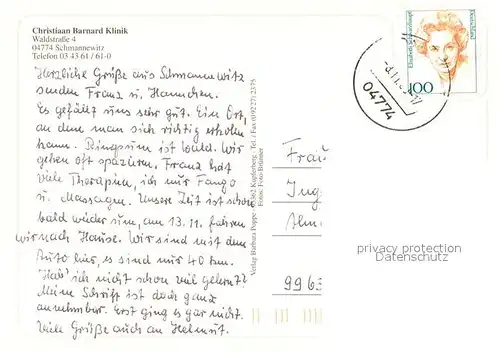 Christiaan Barnard Klinik
Waldstraße 4
04774 Schmannewitz
Telefon 03 43 61 / 61-0
Herzliche Grüße aus Schmannewitz
senden Franz u. Hannchen.
Es gefällt uns sehr gut. Ein Ort,
an dem man sich richtig erholen
kann. Ringsum ist Wald. Wir
gehen oft spazieren. Franz hat
viele Therapien, ich nur Fango
u. Massagen. Unsere Zeit ist schon
bald wieder um, am 13.11. fahren
wir nach Hause. Wir sind mit dem
Auto hier, es sind nur 40 km.
ich nicht schon viel gelernt?
Meine Schrift ist doch ganz
annehmbar. Erst ging es gar nicht.
Viele Grüße auch an Helmut.
Verlag Barbara Poppe
Kupferberg, Tel. / Fax (0 92 27) 23 75
Fotos: Foto-Brunner
Elisabeth Schwarzhaupt
Deutschland
100
04774
Frau
Ing
9963
privacy protection
Datenschutz